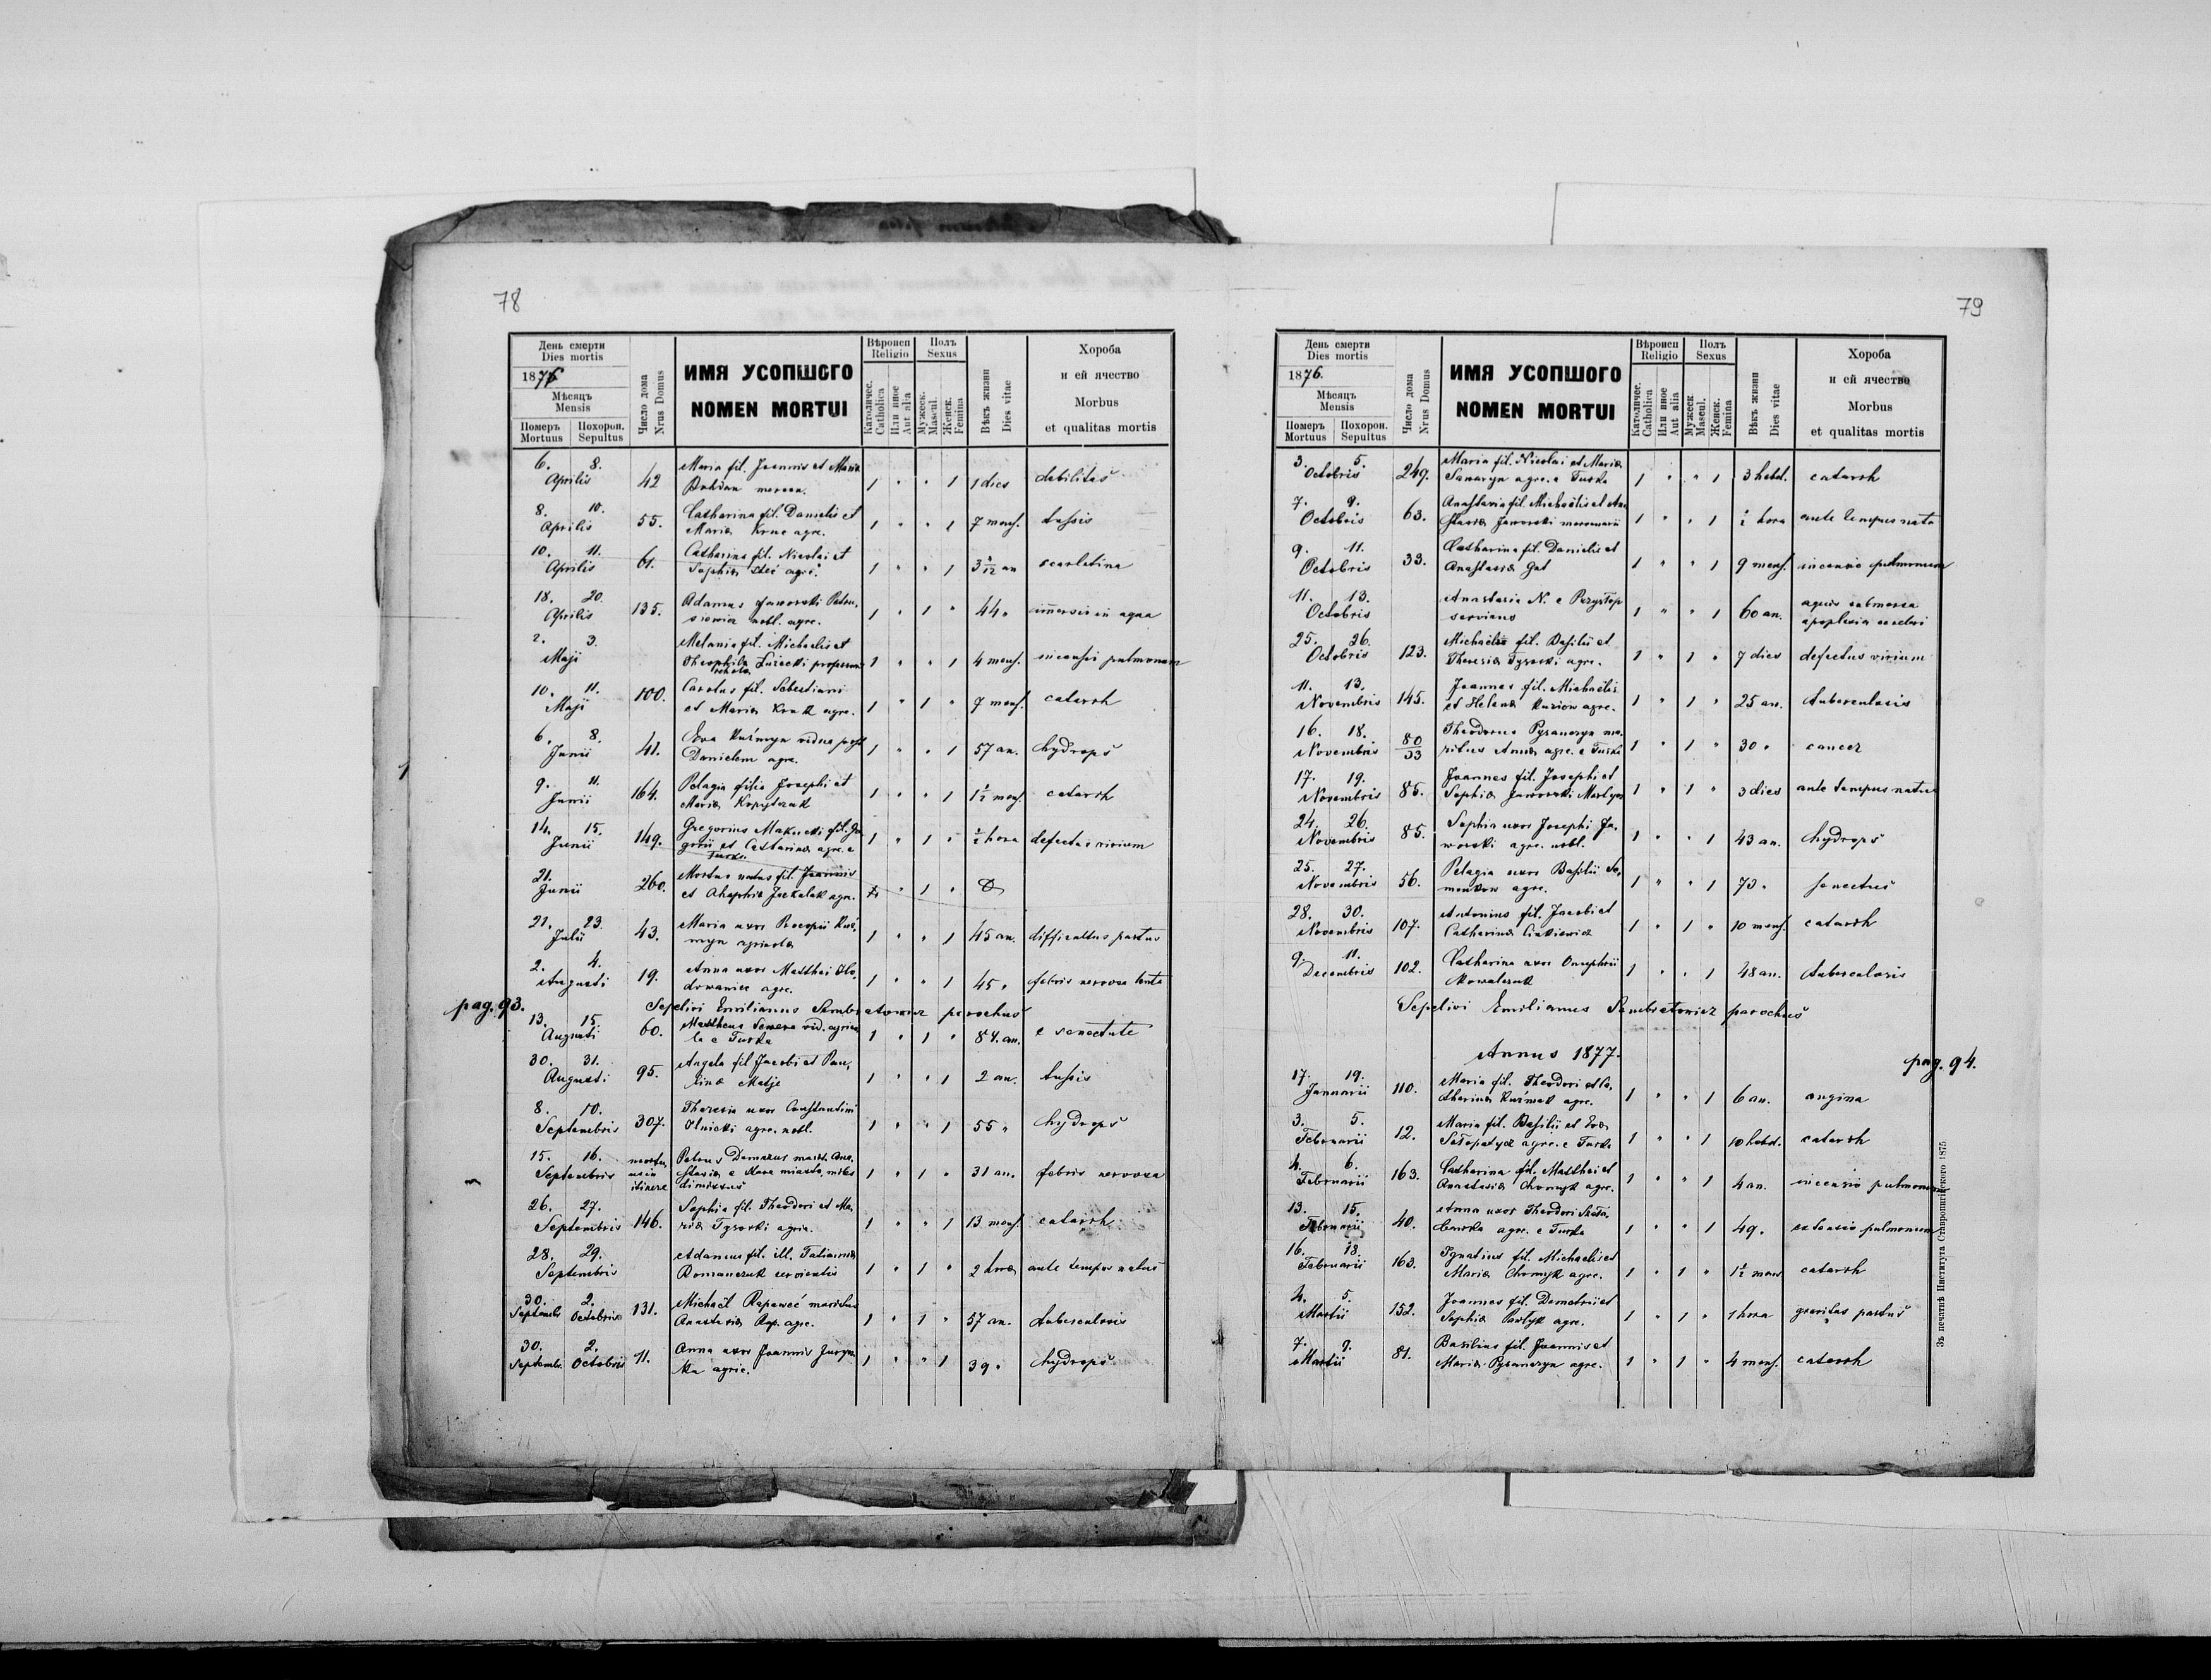 78
День смерти
Dies mortis
1876
Мѣсяцъ
Mensis
Померъ Похорон.
Mortuus Sepultus
Число дома
Nrus Domus
ИМЯ УСОПШОГО
NOMEN MORTUI
Вѣроисп
Religio
Католичес.
Catholica
Или иное
Aut alia
Полъ
Sexus
Мужеск.
Mascul.
Женск.
Femina
Вѣкъ жизни
Dies vitae
Хороба
и ей ячество
Morbus
et qualitas mortis
6. 8. Aprilis 42 Maria fil. Joannis et Maria
1 " " 1 1 dies debilitas
8. 10. Aprilis 55. Catharina fil. Danielis et
Maria agre. 1 " " 1 7 mens. tussis
10. 11. Aprilis 61. Catharina fil. Nicolai et
Sophia agre. 1 " " 1 3 an scarlatina
18. 20. Aprilis 135. Adamus Jaworski
nobl. agre. 1 " 1 " 44 " in aqua
2. 3. Maji Melania fil. Michaelis et
Theophila 1 " " 1 4 mens. pulmonum
10. 11. Maji 100. Carolus fil. Sebestiani
et Maria Kruk agre. 1 " 1 " 7 mens. catarrh
6. 8. Junii 41. Eva Kuźmyn vidua post
Danielem agre. 1 " " 1 57 an. hydrops
9. 11. Junii 164. Pelagia filia Josephi et
Maria Kopytczak 1 " " 1 1½ mens. catarrh
14. 15. Junii 149. Gregorius Makucki fil.
et Catharina agre. e
Turka 1 " 1 " ½ hora defectus virium
21. Junii 260. Mortuus natus fil. Joannis
et agre. " 1 "
21. 23. Julii 43. Maria uxor Procopii Kuź,
myn agricola 1 " " 1 45 an. difficultas partus
2. 4. Augusti 19. Anna uxor Matthei Ilo,
agre. 1 " " 1 45 " febris nervosa lenta
pag. 93. Sepelivi Emilianus Sembratowicz parochus
13. 15. Augusti 60. Mattheus Semena vid. agrico,
la e Turka 1 " 1 " 84. an. e senectute
30. 31. Augusti 95. Angela fil Jacobi et Pau,
lina Matje 1 " " 1 2 an. tussis
8. 10. Septembris 307. Theresia uxor Constantini
Ilnicki agre. nobl. 1 " " 1 55 " hydrops
15. 16. Septembris mortu,
us in
itinere Petrus Damazus marit. Ana,
stasia e Stare miasto, miles
dimissus 1 " 1 " 31 an. febris nervosa
26. 27. Septembris 146. Sophia fil. Theodori et Ma,
ria Tysowski agric. 1 " " 1 13 mens. catarrh
28. 29. Septembris Adamus fil. ill. Tatianna
Romanczuk servientis 1 " 1 " 2 hora ante tempus natus
30. Septembr. 2. Octobris 131. Michaël maritus
Anastasia agre. 1 " 1 " 57 an. tuberculosis
30. Septembr. 2. Octobris 11. Anna uxor Joannis
agric. 1 " " 1 39 " hydrops
79
День смерти
Dies mortis
1876.
Мѣсяцъ
Mensis
Померъ Похорон.
Mortuus Sepultus
Число дома
Nrus Domus
ИМЯ УСОПШОГО
NOMEN MORTUI
Вѣроисп
Religio
Католичес.
Catholica
Или иное
Aut alia
Полъ
Sexus
Мужеск
Mascul.
Женск.
Femina
Вѣкъ жизни
Dies vitae
Хороба
и ей ячество
Morbus
et qualitas mortis
3. 5. Octobris 249. Maria fil. Nicolai et Maria
agre. e Turka 1 " " 1 3 hebd. catarrh
7. 9. Octobris 63. Anastasia fil. Michaelis et Ana
stasia Jaworski mercenarii 1 " " 1 ½ hora ante tempus nata
9. 11. Octobris 33. Catharina fil. Danielis et
Anastasia Gal 1 " " 1 9 mens. incensio pulmonum
11. 13. Octobris Anastasia N. e Przysłop
serviens 1 " " 1 60 an. aquis submersa
apoplexia cerebri
25. 26. Octobris 123. Michaelis fil. Basilii et
Theresia Tysowski agre. 1 " 1 " 7 dies defectus virium
11. 13. Novembris 145. Joannes fil. Michaelis
et Helena agre. 1 " 1 " 25 an. tuberculosis
16. 18. Novembris 80/33 Theodorus Pysanczyn ma,
ritus Anna agre. e Turka 1 " 1 " 30 " cancer
17. 19. Novembris 85. Joannes fil. Josephi et
Sophia Jaworski 1 " 1 " 3 dies ante tempus natus
24. 26. Novembris 85. Sophia uxor Josephi Ja,
worski agre. nobl. 1 " " 1 43 an. hydrops
25. 27. Novembris 56. Pelagia uxor Basilii Se,
menkow agre. 1 " " 1 70 " senectus
28. 30. Novembris 107. Antonius fil. Jacobi et
Catharina 1 " 1 " 10 mens. catarrh
9. 11. Decembris 102. Catharina uxor Onuphrii
Kowalczuk 1 " " 1 48 an. tuberculosis
Sepelivi Emilianus Sembratowicz parochus
Annus 1877.
pag. 94.
17. 19. Januarii 110. Maria fil. Theodori et Ca,
tharina agre. 1 " " 1 6 an. angina
3. 5. Februarii 12. Maria fil. Basilii et Eva
agre. e Turka 1 " " 1 10 hebd. catarrh
4. 6. Februarii 163. Catharina fil. Matthei et
Anastasia Chomyk agre. 1 " " 1 4 an. incensio pulmonum
13. 15. Februarii 40. Anna uxor Theodori
agre. e Turka 1 " " 1 49. pulmonum
16. 18. Februarii 163. Ignatius fil. Michaelis et
Maria Chomyk agre. 1 " 1 " 1½ mens catarrh
4. 5. Martii 152. Joannes fil. Demetrii et
Sophia Pawlyk agre. 1 " 1 " 1 hora gravitas partus
7. 9. Martii 81. Basilius fil. Joannis et
Maria Pysanczyn agre. 1 " 1 " 4 mens. catarrh
Зъ печатнѣ Института Ставропигійского 1875